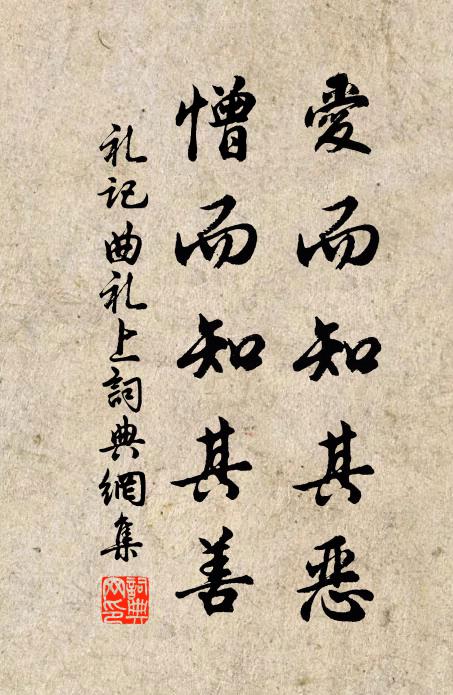 愛而知其惡
憎而知其善
礼记曲礼上詞典網集
詞典
网印